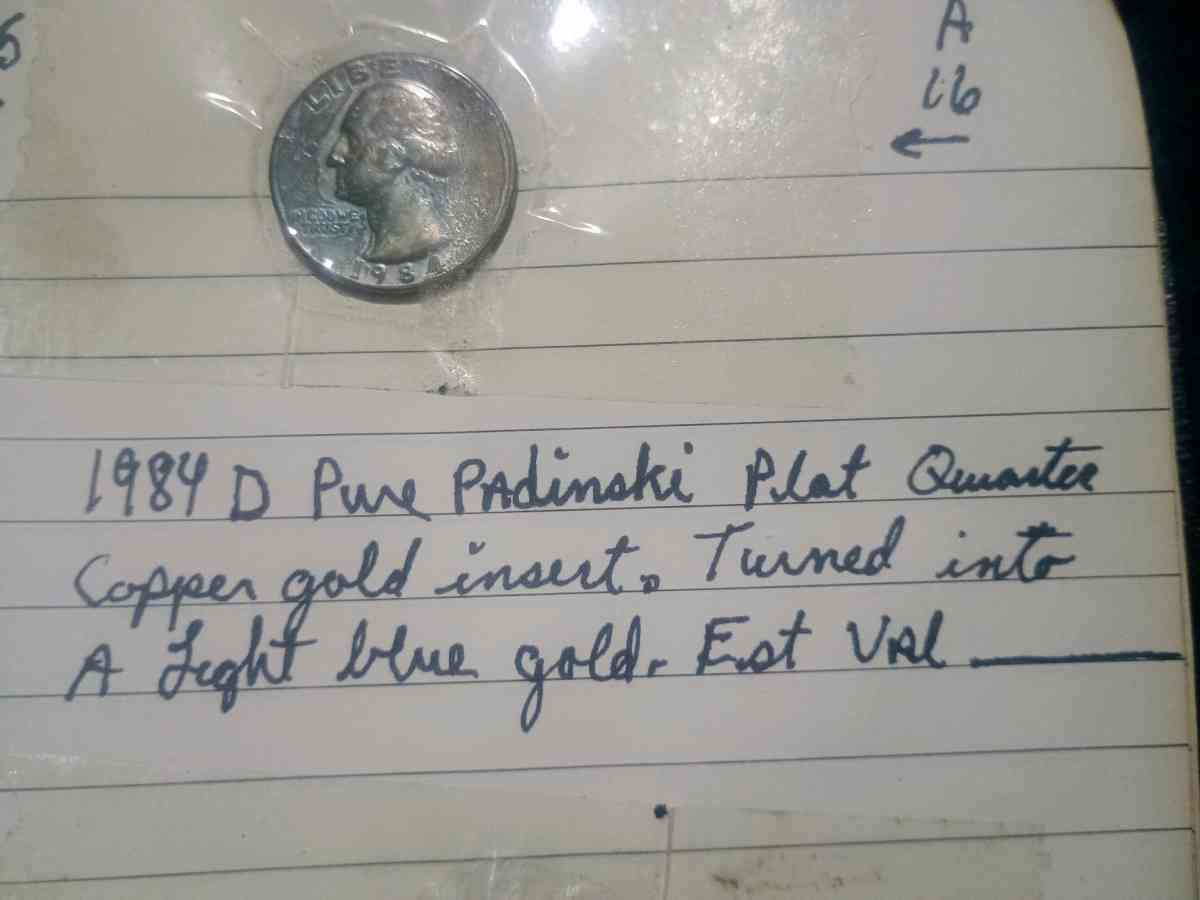 A
16
LIBE
IN GOD WE
TRUST
1984
1984 D Pure PAdinski Plat Quarter
Copper gold insert. Turned into
A Light blue gold. Est VAL